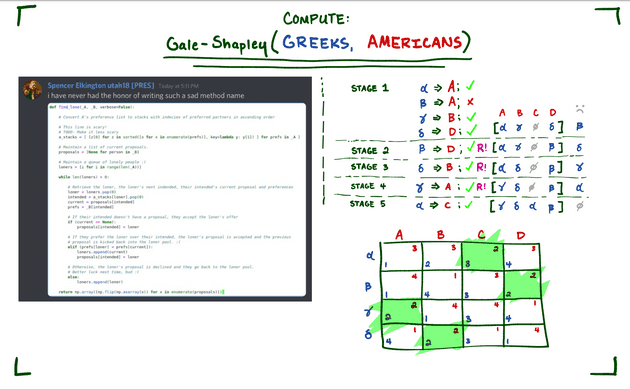 COMPUTE:
Gale-Shapley(GREEKS, AMERICANS)
Spencer Elkington utah1B [PRES] Today at 5:11 PM
i have never had the honor of writing such a sad method name
def find_love(_A, _B, verbose=False):
# Convert A's preference list to stacks with indexes of preferred partners in ascending order
# This line is scary!
# TODO: Make it less scary
# Maintain a list of current proposals.
proposals = [None for person in _B]
# Maintain a queue of lonely people :(
loners = [i for i in range(len(_A))]
while len(loners) > 0:
# Retrieve the loner, the loner's next intended, their intended's current proposal and preferences
loner = loners.pop(0)
intended = a_stacks[loner].pop(0)
current = proposals[intended]
prefs = _B[intended]
# If their intended doesn't have a proposal, they accept the loner's offer
if (current == None):
proposals[intended] = loner
# If they prefer the loner over their intended, the loner's proposal is accepted and the previous
# proposal is kicked back into the loner pool. :(
elif (prefs[loner] < prefs[current]):
loners.append(current)
proposals[intended] = loner
# Otherwise, the loner's proposal is declined and they go back to the loner pool.
# Better luck next time, bud :(
else:
loners.append(loner)
STAGE 1
α ⇒ A; ✓
β ⇒ A; ×
γ ⇒ B; ✓
δ ⇒ D; ✓
A B C D
[α γ ∅ δ] β
STAGE 2 β ⇒ D; ✓ R! [α γ ∅ β] δ
STAGE 3 δ ⇒ B; ✓ R! [α δ ∅ β] γ
STAGE 4 γ ⇒ A; ✓ R! [γ δ ∅ β] α
STAGE 5 α ⇒ C; ✓ [γ δ α β] ∅
A B C D
α 3 3 2 3
1 2 3 4
β 4 1 3 2
1 4 3 2
γ 2 4 4 1
2 1 3 4
δ 1 2 1 4
4 2 3 1